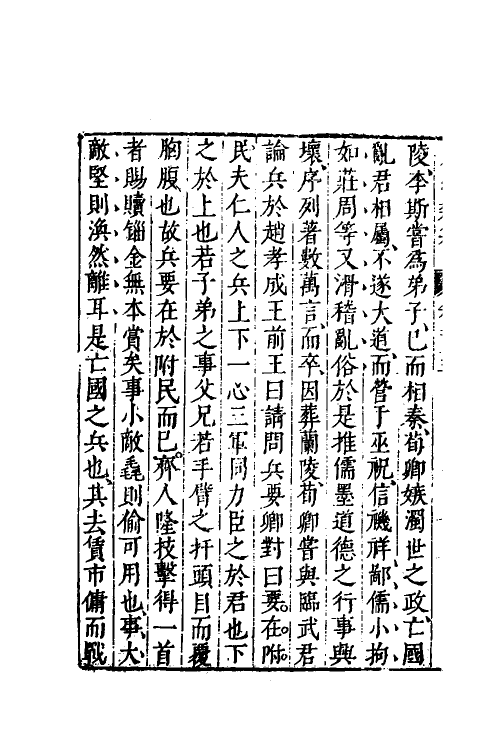 陵李斯嘗為弟子已而相秦荀卿嫉濁世之政亡國
亂君相屬不遂大道而營于巫祝信禨祥鄙儒小拘
如莊周等又滑稽亂俗於是推儒墨道德之行事興
壞序列著數萬言而卒因葬蘭陵荀卿嘗與臨武君
論兵於趙孝成王前王曰請問兵要卿對曰要在附
民夫仁人之兵上下一心三軍同力臣之於君也下
之於上也若子弟之事父兄若手臂之扞頭目而覆
胸腹也故兵要在於附民而已齊人隆技擊得一首
者賜贖錙金無本賞矣事小敵毳則偷可用也事大
敵堅則渙然離耳是亡國之兵也其去賃市傭而戰